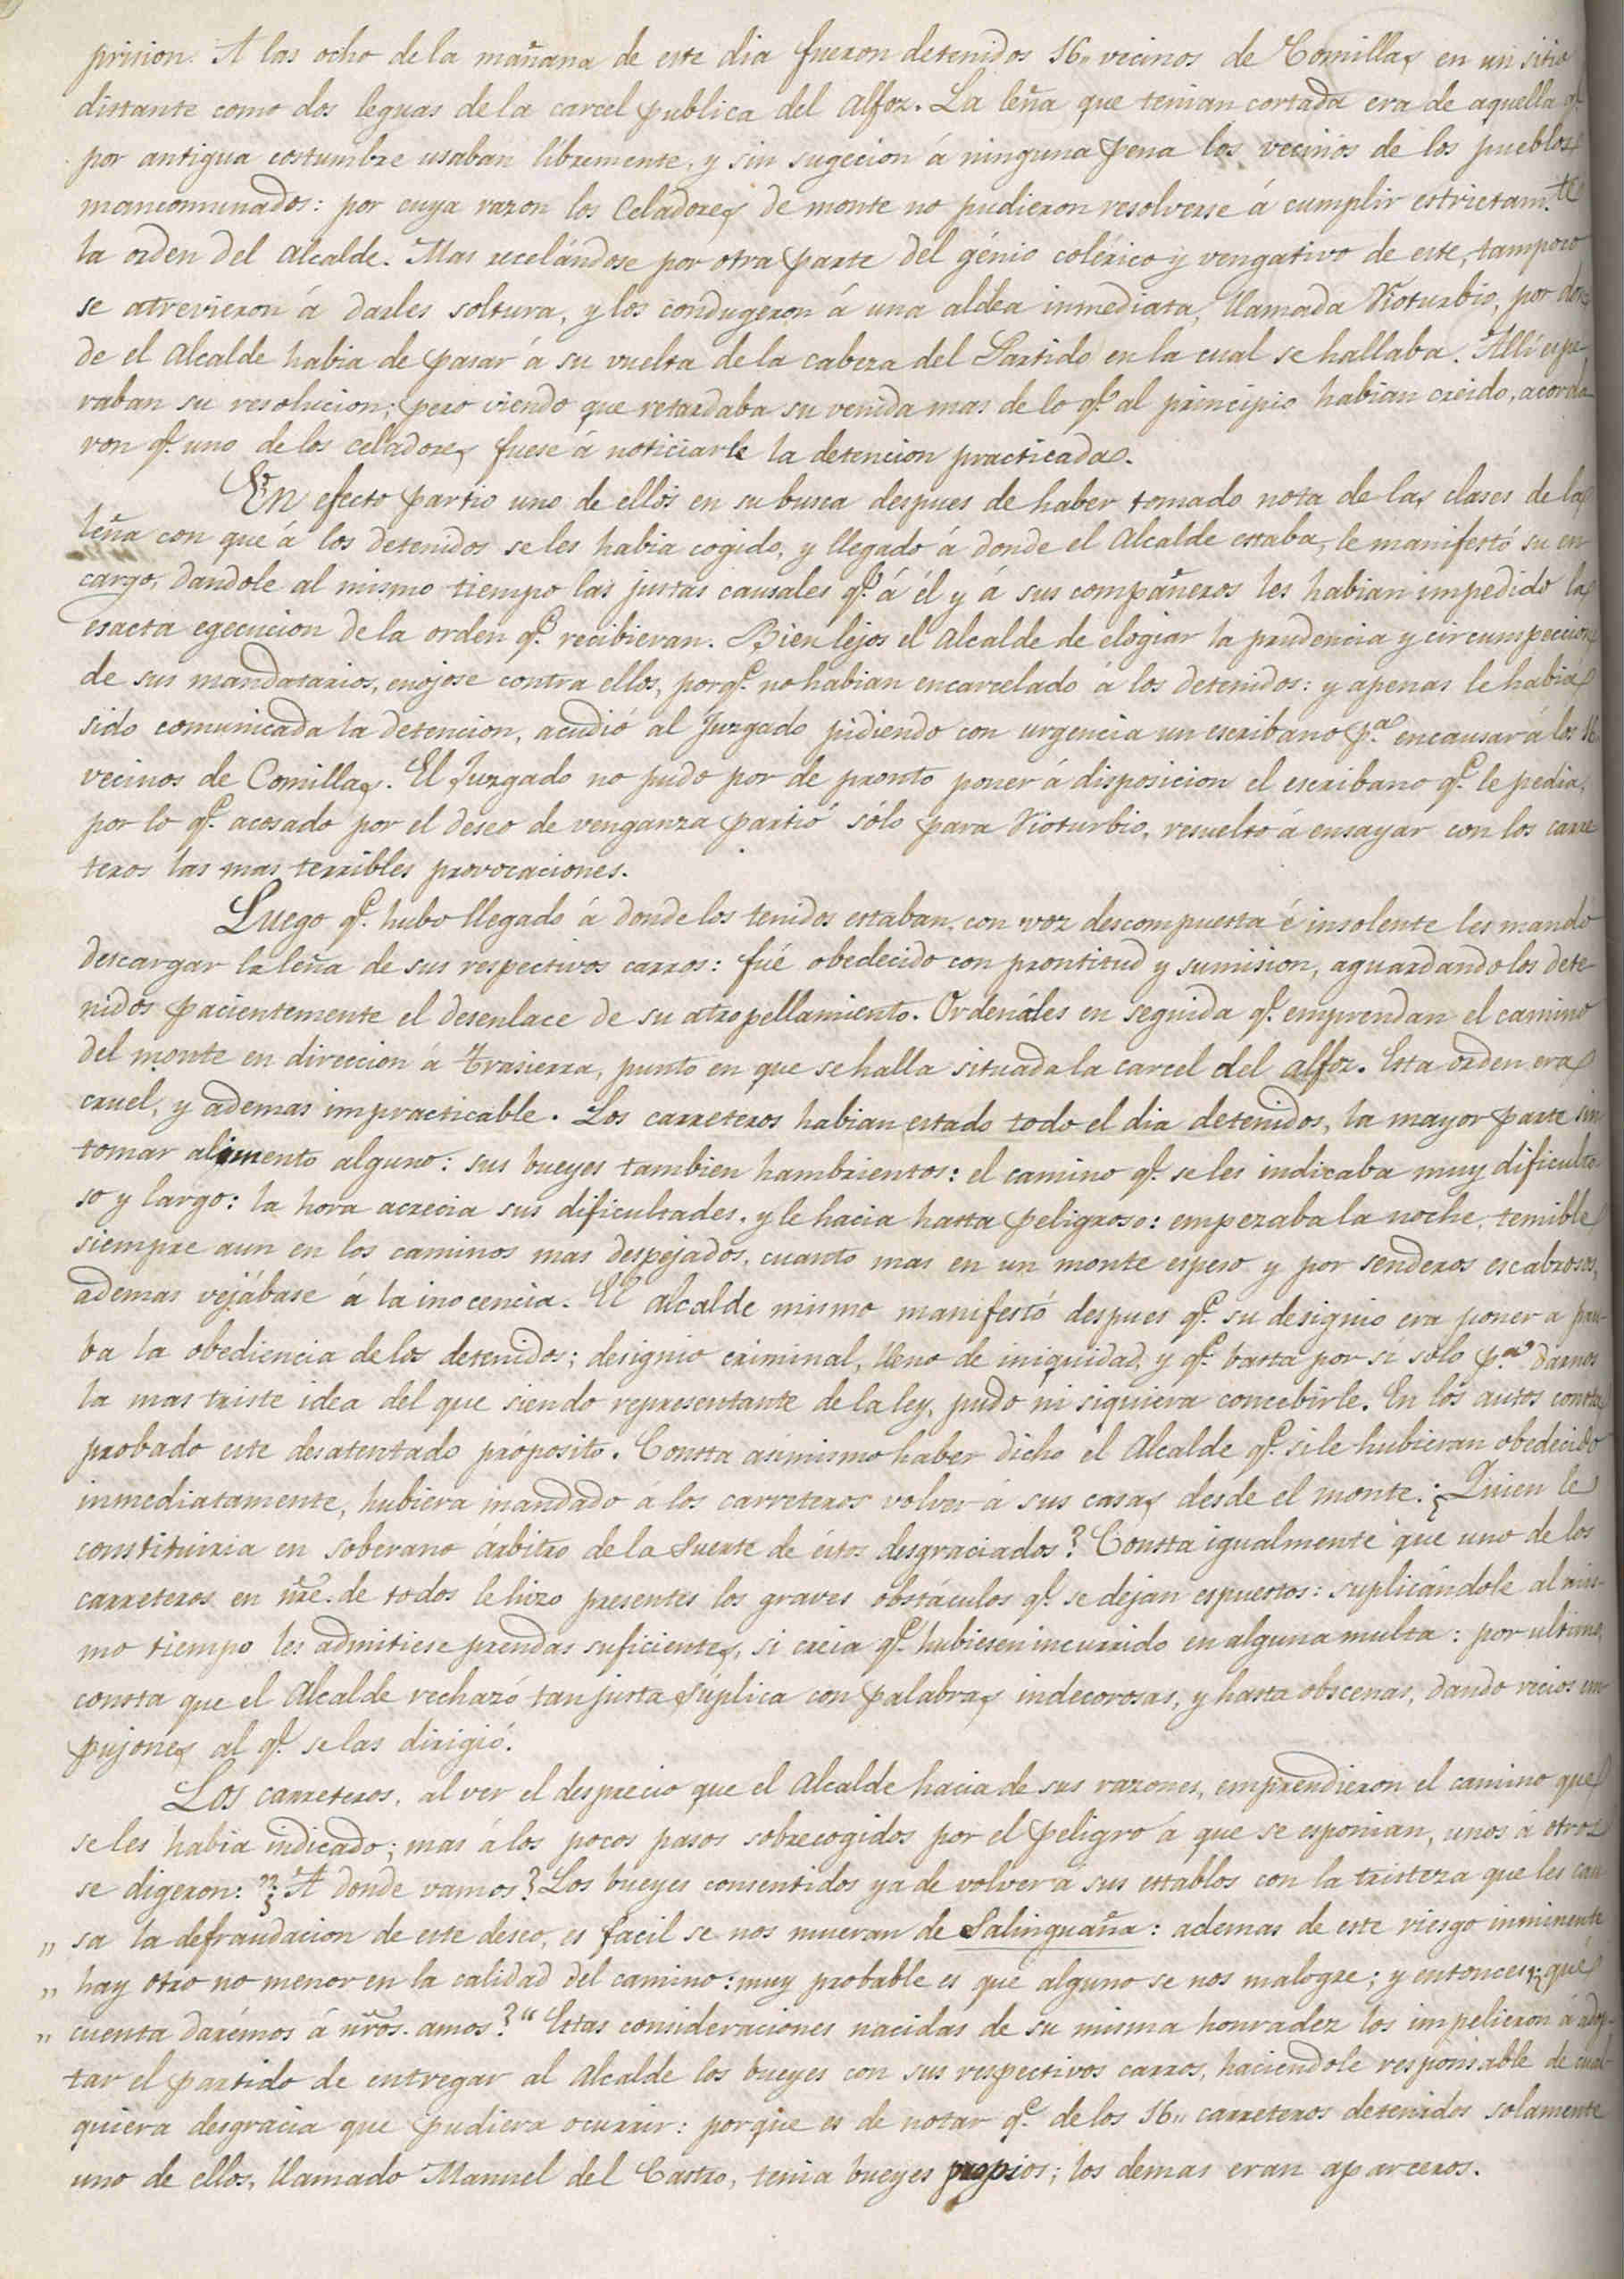 prision. A las ocho de la mañana de este dia fueron detenidos 16,, vecinos de Comillas en un sitio
distante como dos leguas de la carcel publica del alfoz. La leña que tenian cortada era de aquella q.e
por antigua costumbre usaban libremente, y sin sugecion á ninguna pena los vecinos de los pueblos
mancomunados: por cuya razon los Celadores de monte no pudieron resolverse á cumplir estrictam.te
la orden del Alcalde. Mas recelándose por otra parte del génio colérico y vengativo de este, tampoco
se atrevieron á darles soltura, y los condugeron á una aldéa inmediata, llamada Rioturbio, por don
de el Alcalde habia de pasar á su vuelta de la cabeza del Partido en la cual se hallaba. Allí espe
raban su resolucion; pero viendo que retardaba su venida mas de lo q.e al principio habian creido, acorda
ron q.e uno de los celadores fuese á noticiarle la detencion practicada.
En efecto partio uno de ellos en su busca despues de haber tomado nota de las clases de la
leña con que á los detenidos se les habia cogido, y llegado á donde el Alcalde estaba, le manifestó su en
cargo, dandole al mismo tiempo las justas causales q.e á él y á sus compañeros les habian impedido la
esacta egecucion de la orden q.e recibieran. Bien lejos el Alcalde de elogiar la prudencia y circumpeccion
de sus mandatarios, enojose contra ellos, porq.e no habian encarcelado á los detenidos: y apenas le habia
sido comunicada la detencion, acudió al Juzgado pidiendo con urgencia un escribano p.a encausar á los 16
vecinos de Comillas. El Juzgado no pudo por de pronto poner á disposicion el escribano q.e le pedia,
por lo q.e acosado por el deseo de venganza partió sólo para Rioturbio, resuelto á ensayar con los carre
teros las mas terribles provocaciones.
Luego q.e hubo llegado á donde los tenidos estaban, con voz descompuesta é insolente les mandó
descargar la leña de sus respectivos carros: fué obedecido con prontitud y sumision, aguardando los dete-
nidos pacientemente el desenlace de su atropellamiento. Ordenáles en seguida q.e emprendan el camino
del monte en direccion á Trasierra, punto en que se halla situada la carcel del alfoz. Esta orden era
cruel, y ademas impracticable. Los carreteros habian estado todo el dia detenidos, la mayor parte sin
tomar alimento alguno: sus bueyes tambien hambrientos: el camino q.e se les indicaba muy dificulto
so y largo: la hora acrecia sus dificultades, y le hacia hasta peligroso: empezaba la noche, temible
siempre aun en los caminos mas despejados, cuanto mas en un monte espeso y por senderos escabrosos,
ademas vejábase á la inocencia. El Alcalde mismo manifestó despues q.e su designio era poner a prue-
ba la obediencia de los detenidos; designio criminal, lleno de iniquidad, y q.e basta por sí solo p.a darnos
la mas triste idea del que siendo representante de la ley, pudo ni siquiera concebirle. En los autos consta
probado este desatentado próposito. Consta asimismo haber dicho el Alcalde q.e si le hubieran obedecido
inmediatamente, hubiera mandado á los carreteros volver á sus casas desde el monte. ¿Quien le
constituiria en soberano árbitro de la suerte de éstos desgraciados? Consta igualmente que uno de los
carreteros en ñre. de todos le hizo presentes los graves obstáculos q.e se dejan espuestos: suplicándole al mis-
mo tiempo les admitiese prendas suficientes, si creia q.e hubiesen incurrido en alguna multa: por ultimo,
consta que el Alcalde rechazó tan justa súplica con palabras indecorosas, y hasta obscenas, dando recios em
pujones al q.e se las dirigió.
Los carreteros, al ver el desprecio que el Alcalde hacia de sus razones, emprendieron el camino que
se les habia indicado; mas á los pocos pasos sobrecogidos por el peligro á que se esponian, unos á otros
se digeron: "¿A donde vamos? Los bueyes consentidos ya de volver á sus establos con la tristeza que les cau
,, sa la defraudacion de este deseo, es facil se nos mueran de Salinguaña: ademas de este riesgo inminente
,, hay otro no menor en la calidad del camino: muy probable es que alguno se nos malogre; y entonces ¿qué
,, cuenta darémos á ñros. amos?" Estas consideraciones nacidas de su misma honradez los impelieron á adop-
tar el partido de entregar al Alcalde los bueyes con sus respectivos carros, haciendole responsable de cual-
quiera desgracia que pudiera ocurrir: porque es de notar q.e de los 16,, carreteros detenidos solamente
uno de ellos, llamado Manuel del Castro, tenia bueyes propios; los demas eran aparceros.